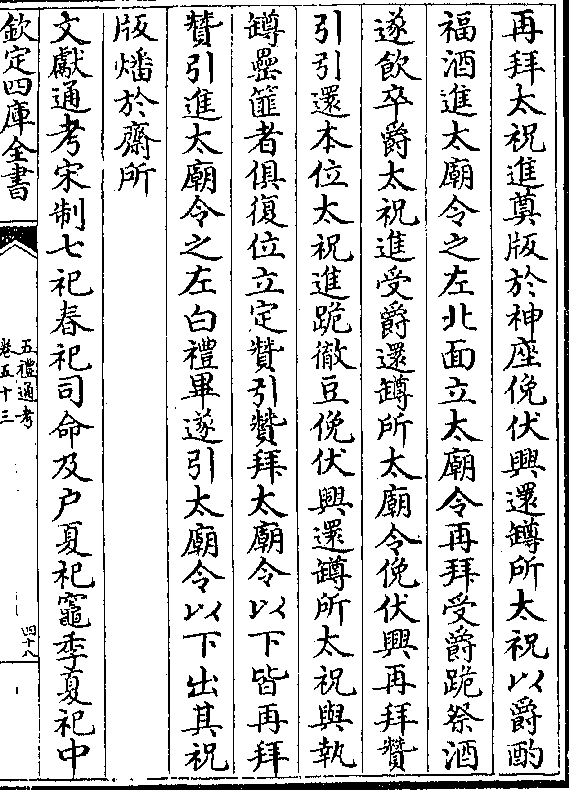 再拜太祝進奠版於神座俛伏興還罇所太祝以爵酌
福酒進太廟令之左北面立太廟令再拜受爵跪祭酒
遂飲卒爵太祝進受爵還罇所太廟令俛伏興再拜贊
引引還本位太祝進跪徹豆俛伏興還罇所太祝與執
罇罍篚者俱復位立定贊引贊拜太廟令以下皆再拜
贊引進太廟令之左白禮畢遂引太廟令以下出其祝
版燔於齋所
文獻通考宋制七祀春祀司命及户夏祀竈季夏祀中
欽定四庫全書
五禮通考
卷五十三
四十八